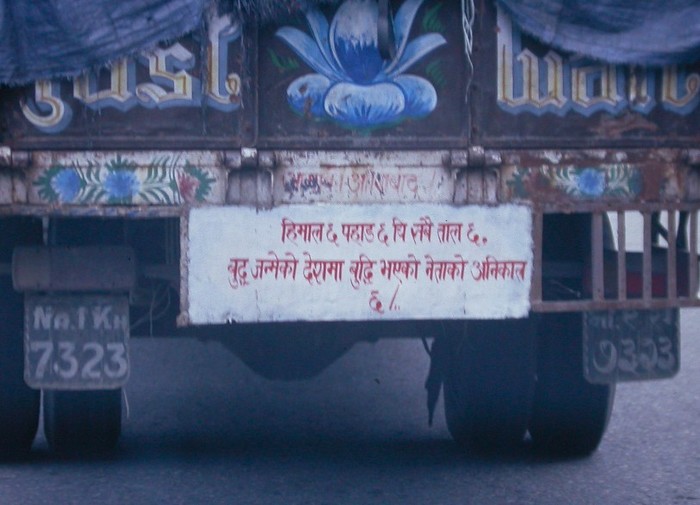 Just Wait
हिमाल ६ पहाड ६ यि सबै ताल ६.
बुद्ध जन्मेको देशमा बुद्धि भएको नेताको अनिकाल
६ /.
Na.1 KH
7323
७३२३